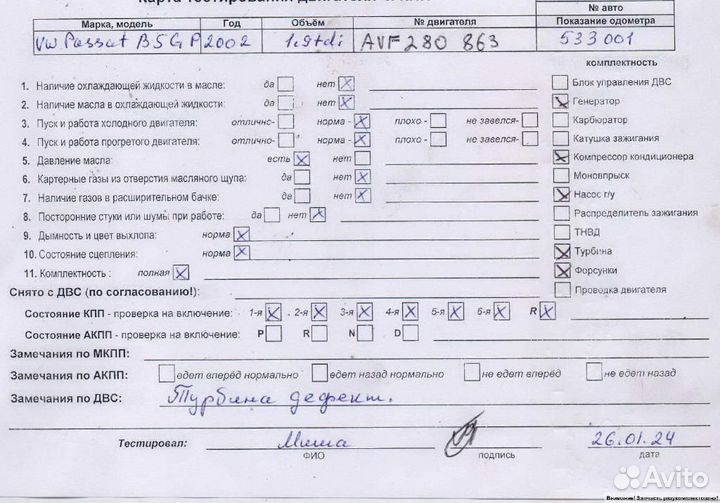 № авто
Марка, модель Год Объём № двигателя Показание одометра
VW Passat B5GP 2002 1.9tdi AVF 280 863 533001
комплектность
1. Наличие охлаждающей жидкости в масле: да нет X
Блок управления ДВС
2. Наличие масла в охлаждающей жидкости: да нет X
X Генератор
3. Пуск и работа холодного двигателя: отлично- норма - X плохо - не завелся-
Карбюратор
4. Пуск и работа прогретого двигателя: отлично- норма - X плохо - не завелся-
Катушка зажигания
5. Давление масла: есть X нет
X Компрессор кондиционера
6. Картерные газы из отверстия масляного щупа: да нет X
Моновпрыск
7. Наличие газов в расширительном бачке: да нет X
X Насос г/у
8. Посторонние стуки или шумы при работе: да нет X
Распределитель зажигания
9. Дымность и цвет выхлопа: норма X
ТНВД
10. Состояние сцепления: норма X
X Турбина
11. Комплектность : полная X
X Форсунки
Снято с ДВС (по согласованию!):
Проводка двигателя
Состояние КПП - проверка на включение: 1-я X 2-я X 3-я X 4-я X 5-я X 6-я X R X
Состояние АКПП - проверка на включение: P R N D
Замечания по МКПП:
Замечания по АКПП: едет вперёд нормально едет назад нормально не едет вперёд не едет назад
Замечания по ДВС: Турбина дефект.
Тестировал: Миша 26.01.24
ФИО подпись дата
Avito